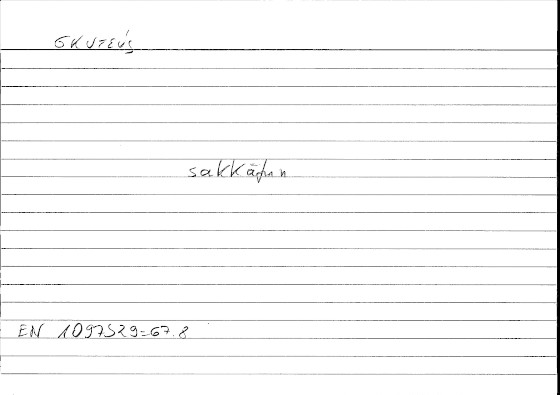 σκυτεύς
sakkāfun
EN 1097b29=67.8